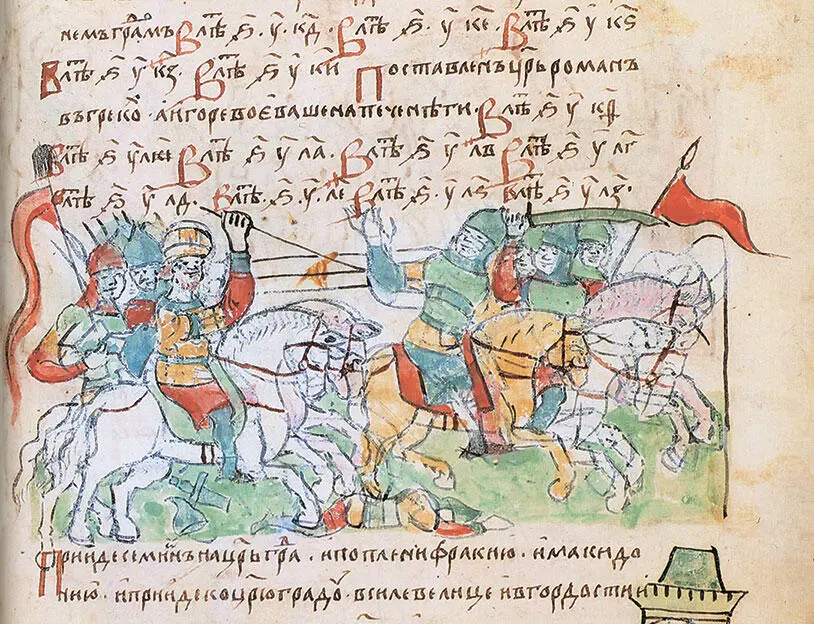 немъ грⷣамъ Влⷮѣ ѕ҃ у҃ к҃д Влⷮѣ ѕ҃ у҃ к҃е Влⷮѣ ѕ҃ у҃ к҃ѕ
Влⷮѣ ѕ҃ у҃ к҃з Влⷮѣ ѕ҃ у҃ к҃и Поставленъ цр҃ь романъ
въ греко · а игорє воєваше на печенѣги · Влⷮѣ ѕ҃ у҃
Влⷮѣ ѕ҃ у҃ Влⷮѣ ѕ҃ у҃ л҃а Влⷮѣ ѕ҃ у҃ л҃в Влⷮѣ ѕ҃ у҃ л҃г
Влⷮѣ ѕ҃ у҃ л҃д Влⷮѣ ѕ҃ у҃ л҃е Влⷮѣ ѕ҃ у҃ л҃ѕ Влⷮѣ ѕ҃ у҃ л҃з
Приде семинъ на цр҃ьграⷣ · и поплени фракию · и макидо
нию · и приде ко цр҃юградоу · в силе велице и в гордости